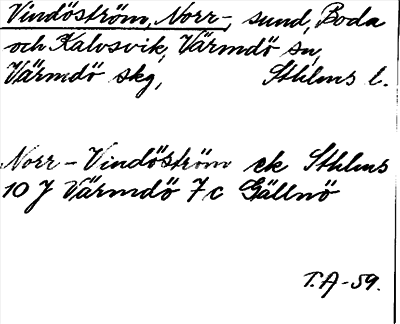 Vindöström, Norr-, sund, Boda
och Kalvsvik, Värmdö sn,
Värmdö skg, Sthlms l.
Norr-Vindöström ek Sthlms
10 J Värmdö 7 c Gällnö
T.A-59.